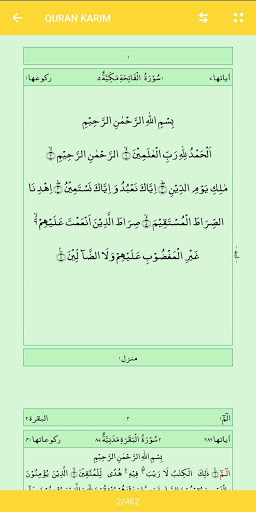 QURAN KARIM
١
اٰیاتها۷ ۱سُوْرَةُ الْفَاتِحَةِ مَكِّيَّةٌ۵ رکوعها۱
بِسْمِ اللّٰهِ الرَّحْمٰنِ الرَّحِيْمِ
اَلْحَمْدُ لِلّٰهِ رَبِّ الْعٰلَمِيْنَ۝۱ الرَّحْمٰنِ الرَّحِيْمِ۝۲
مٰلِكِ يَوْمِ الدِّيْنِ۝۳ اِيَّاكَ نَعْبُدُ وَ اِيَّاكَ نَسْتَعِيْنُ۝۴ اِهْدِ نَا
الصِّرَاطَ الْمُسْتَقِيْمَ۝۵ صِرَاطَ الَّذِيْنَ اَنْعَمْتَ عَلَيْهِمْ۝۶
غَيْرِ الْمَغْضُوْبِ عَلَيْهِمْ وَلَا الضَّآ لِّيْنَ۝۷
منزل۱
الٓمّٓ۱ ۲ البقرة۲
اٰیاتها۲۸۶ ۲سُوْرَةُ الْبَقَرَةِ مَدَنِيَّةٌ۸۷ رکوعاتها۴۰
بِسْمِ اللّٰهِ الرَّحْمٰنِ الرَّحِيْمِ
الٓمّٓ۝۱ ذٰلِكَ الْكِتٰبُ لَا رَيْبَ فِيْهِ هُدًى لِّلْمُتَّقِيْنَ۝۲ الَّذِيْنَ يُؤْمِنُوْنَ
2/462